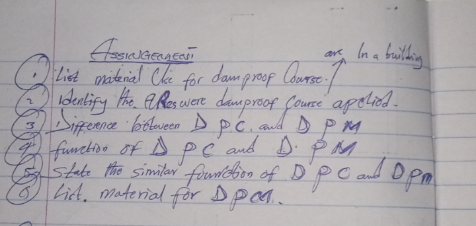 ASSINGEMENT
are In a building
1 List material Use for damproof Course.
2 Identify the AReas were damproof Course apclied.
3 Difference between D P C and D P M
4 function of D P C and D. P M
5 State the similar foundtion of D P C and D P M
6 List. material for D P M.